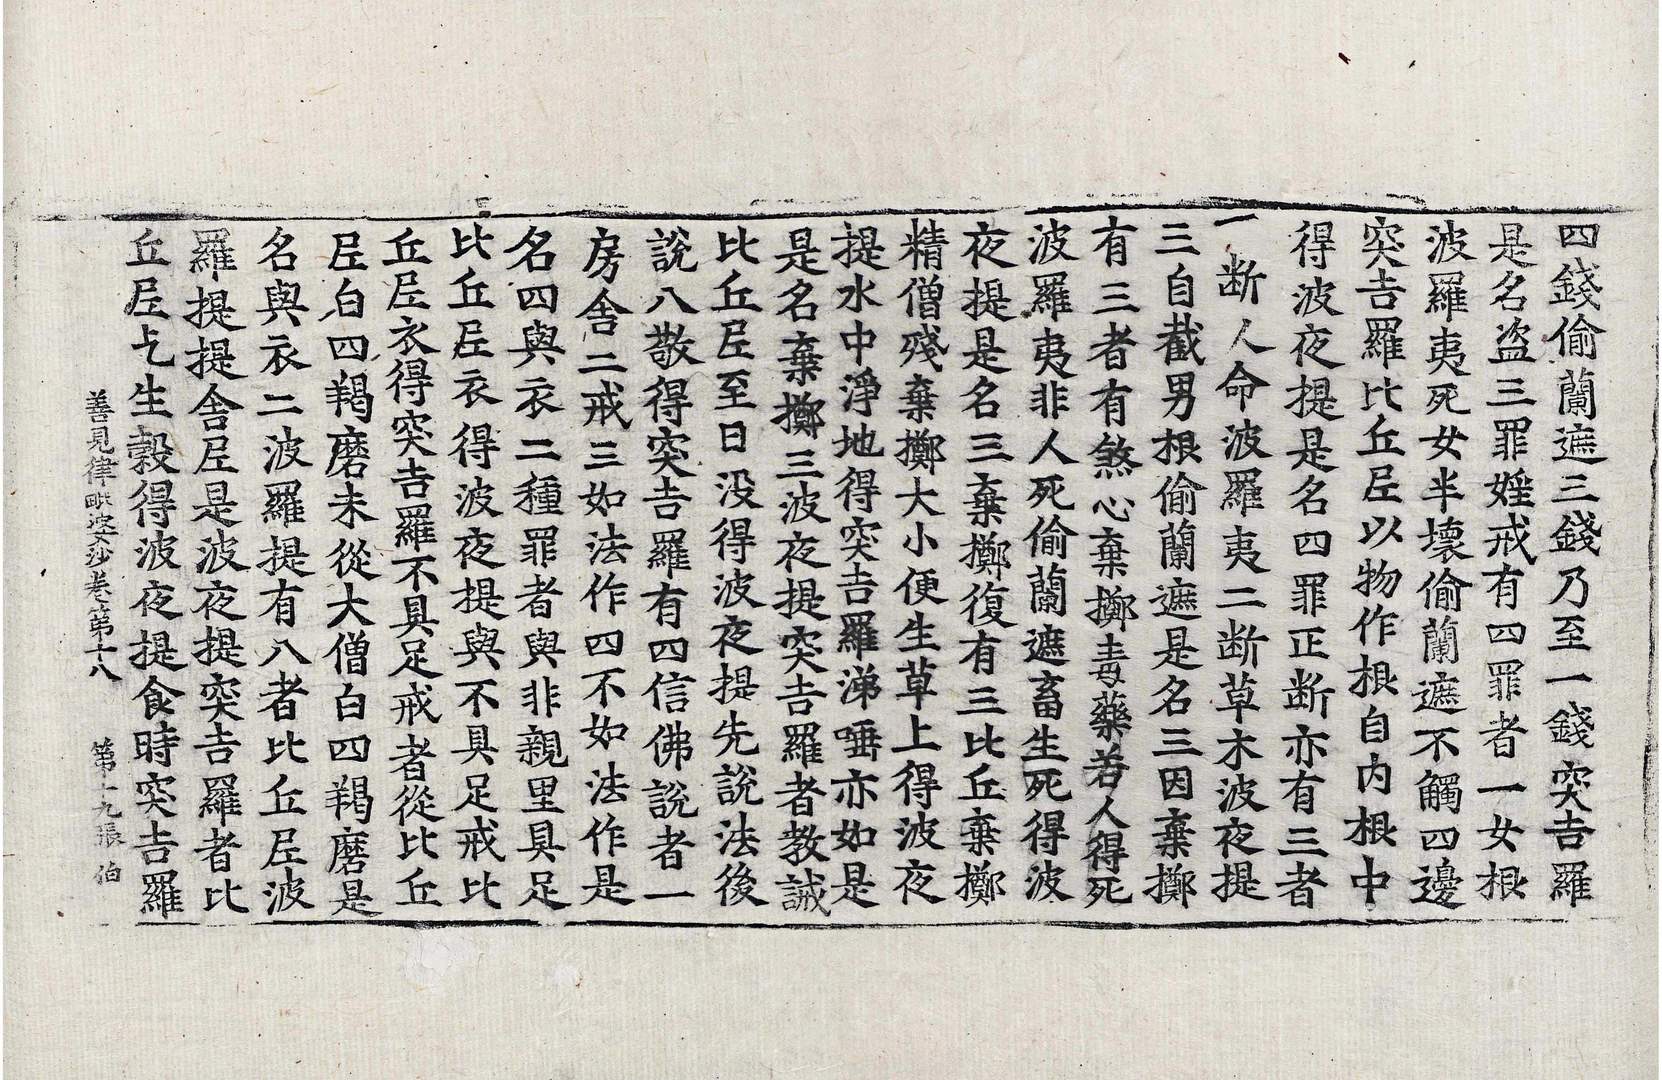 四錢偷蘭遮三錢乃至一錢突吉羅
是名盗三罪婬戒有四罪者一女根
波羅夷死女半壞偷蘭遮不觸四邊
突吉羅比丘𡰱以物作根自内根中
得波夜提是名四罪正断亦有三者
一断人命波羅夷二断草木波夜提
三自截男根偷蘭遮是名三因棄擲
有三者有煞心棄擲毒藥若人得死
波羅夷非人死偷蘭遮畜生死得波
夜提是名三棄擲復有三比丘棄擲
精僧殘棄擲大小便生草上得波夜
提水中淨地得突吉羅涕唾亦如是
是名棄擲三波夜提突吉羅者教誡
比丘𡰱至日没得波夜提先說法後
說八敬得突吉羅有四信佛說者一
房舍二戒三如法作四不如法作是
名四與衣二種罪者與非親里具足
比丘𡰱衣得波夜提與不具足戒比
丘𡰱衣得突吉羅不具足戒者從比丘
𡰱白四羯磨未從大僧白四羯磨是
名與衣二波羅提有八者比丘𡰱波
羅提提舍𡰱是波夜提突吉羅者比
丘𡰱乞生穀得波夜提食時突吉羅
善見律毗婆沙卷第十八　第十九張　伯